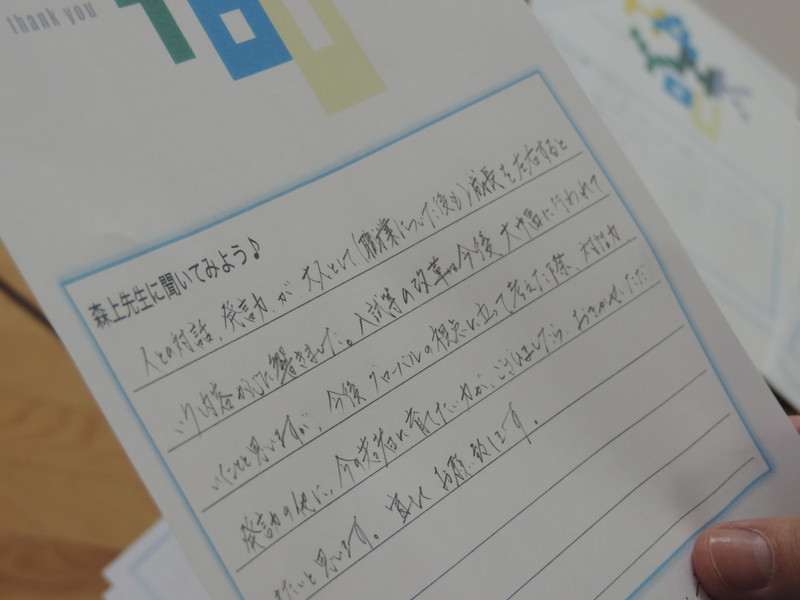 thank you
森上先生に聞いてみよう♪
人との対話、発言力が大人として(職業についた後も)成長を左右すると
いう内容が心に響きました。入試等の改革も今後大幅に行われて
いくことと思いますが、今後グローバルの視点に立って考えた際、対話力
発言力の他に、今の若者に育てたい力がございましたら、お聞かせいただ
きたいと思います。宜しくお願い致します。